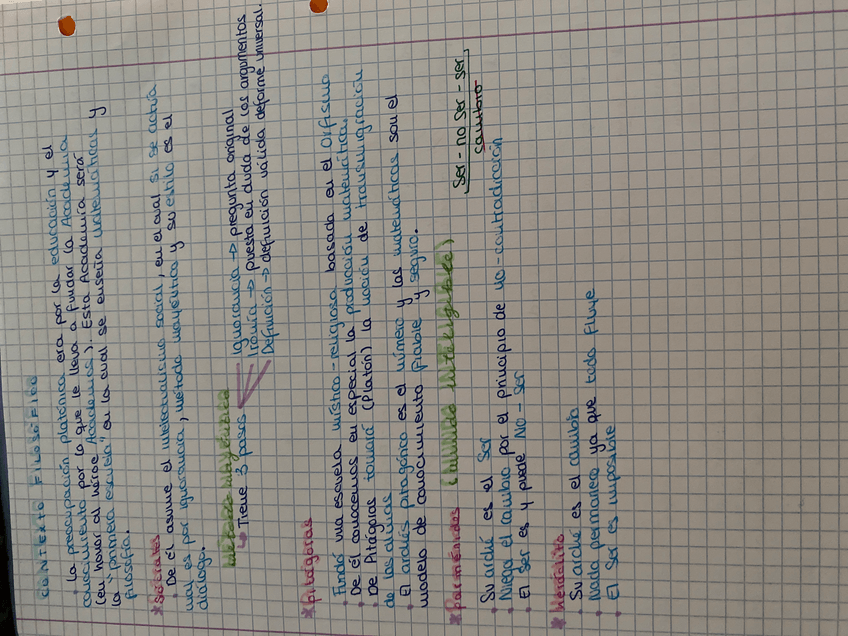 CONTEXTO FILOSÓFICO
· La preocupación platónica era por la educación y el
conocimiento por lo que le lleva a fundar la Academia
(en honor al héroe Academus). Esta Academia será
la "primera escuela" en la cual se enseña matemáticas y
filosofía.
* Sócrates
· De él asume el intelectualismo social, en el cual si se actúa
mal es por ignorancia, método mayéutico y su estilo es el
diálogo.
Método mayéutico
↳ Tiene 3 pasos
Ignorancia → pregunta original
Ironía → puesta en duda de los argumentos
Definición → definición válida de forma universal.
* Pitágoras
· Fundó una escuela místico-religiosa basada en el Orfismo
· De él conocemos en especial la producción matemática.
· De Pitágoras tomará (Platón) la noción de transmigración
de las almas
· El arché pitagórico es el número y las matemáticas son el
modelo de conocimiento fiable y seguro.
* Parménides (mundo inteligible)
Ser - no ser - ser
cambio
· Su arché es el Ser
· Niega el cambio por el principio de no-contradicción
· El ser es y puede NO-ser
* Heráclito
· Su arché es el cambio
· Nada permanece ya que todo fluye
· El Ser es imposible